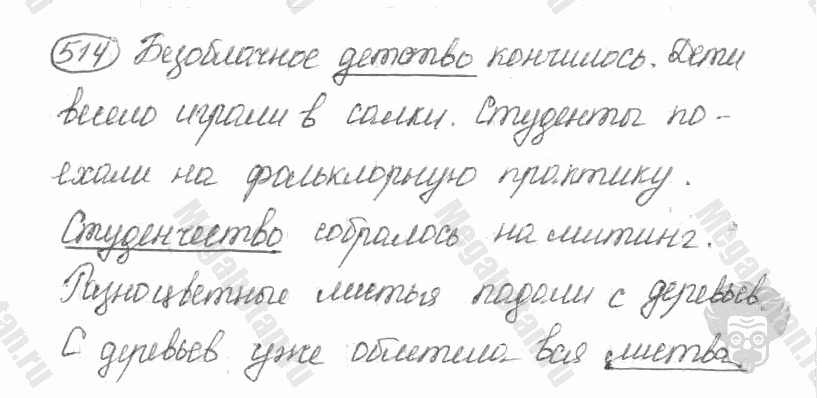 514 Безоблачное детство кончилось. Дети
весело играли в салки. Студенты по-
ехали на фольклорную практику.
Студенчество собралось на митинг.
Разноцветные листья падали с деревьев.
С деревьев уже облетела вся листва.
Megabotan.ru